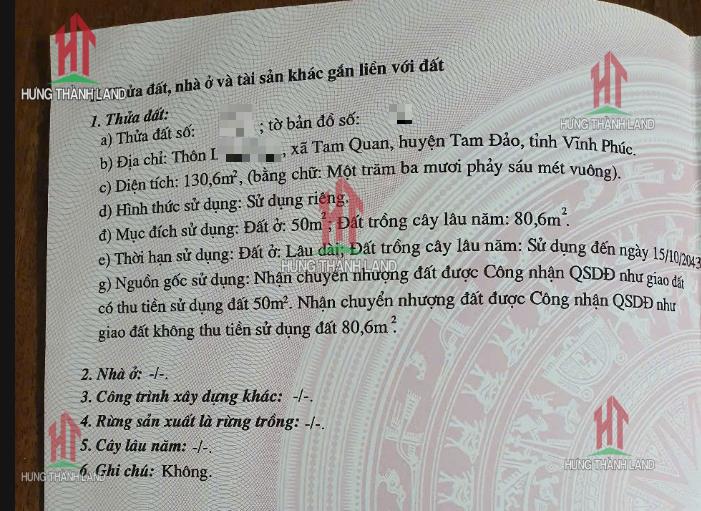 HƯNG THÀNH LAND
ửa đất, nhà ở và tài sản khác gắn liền với đất
1. Thửa đất:
a) Thửa đất số: ; tờ bản đồ số:
HƯNG THÀNH LAND
b) Địa chỉ: Thôn L , xã Tam Quan, huyện Tam Đảo, tỉnh Vĩnh Phúc.
c) Diện tích: 130,6m², (bằng chữ: Một trăm ba mươi phảy sáu mét vuông).
d) Hình thức sử dụng: Sử dụng riêng.
đ) Mục đích sử dụng: Đất ở: 50m²; Đất trồng cây lâu năm: 80,6m².
e) Thời hạn sử dụng: Đất ở: Lâu dài; Đất trồng cây lâu năm: Sử dụng đến ngày 15/10/2043
HƯNG THÀNH LAND
g) Nguồn gốc sử dụng: Nhận chuyển nhượng đất được Công nhận QSDĐ như giao đất
có thu tiền sử dụng đất 50m². Nhận chuyển nhượng đất được Công nhận QSDĐ như
giao đất không thu tiền sử dụng đất 80,6m².
2. Nhà ở: -/-.
3. Công trình xây dựng khác: -/-.
4. Rừng sản xuất là rừng trồng: -/-.
5. Cây lâu năm: -/-.
6. Ghi chú: Không.
HƯNG THÀNH LAND
HƯNG THÀNH LAND